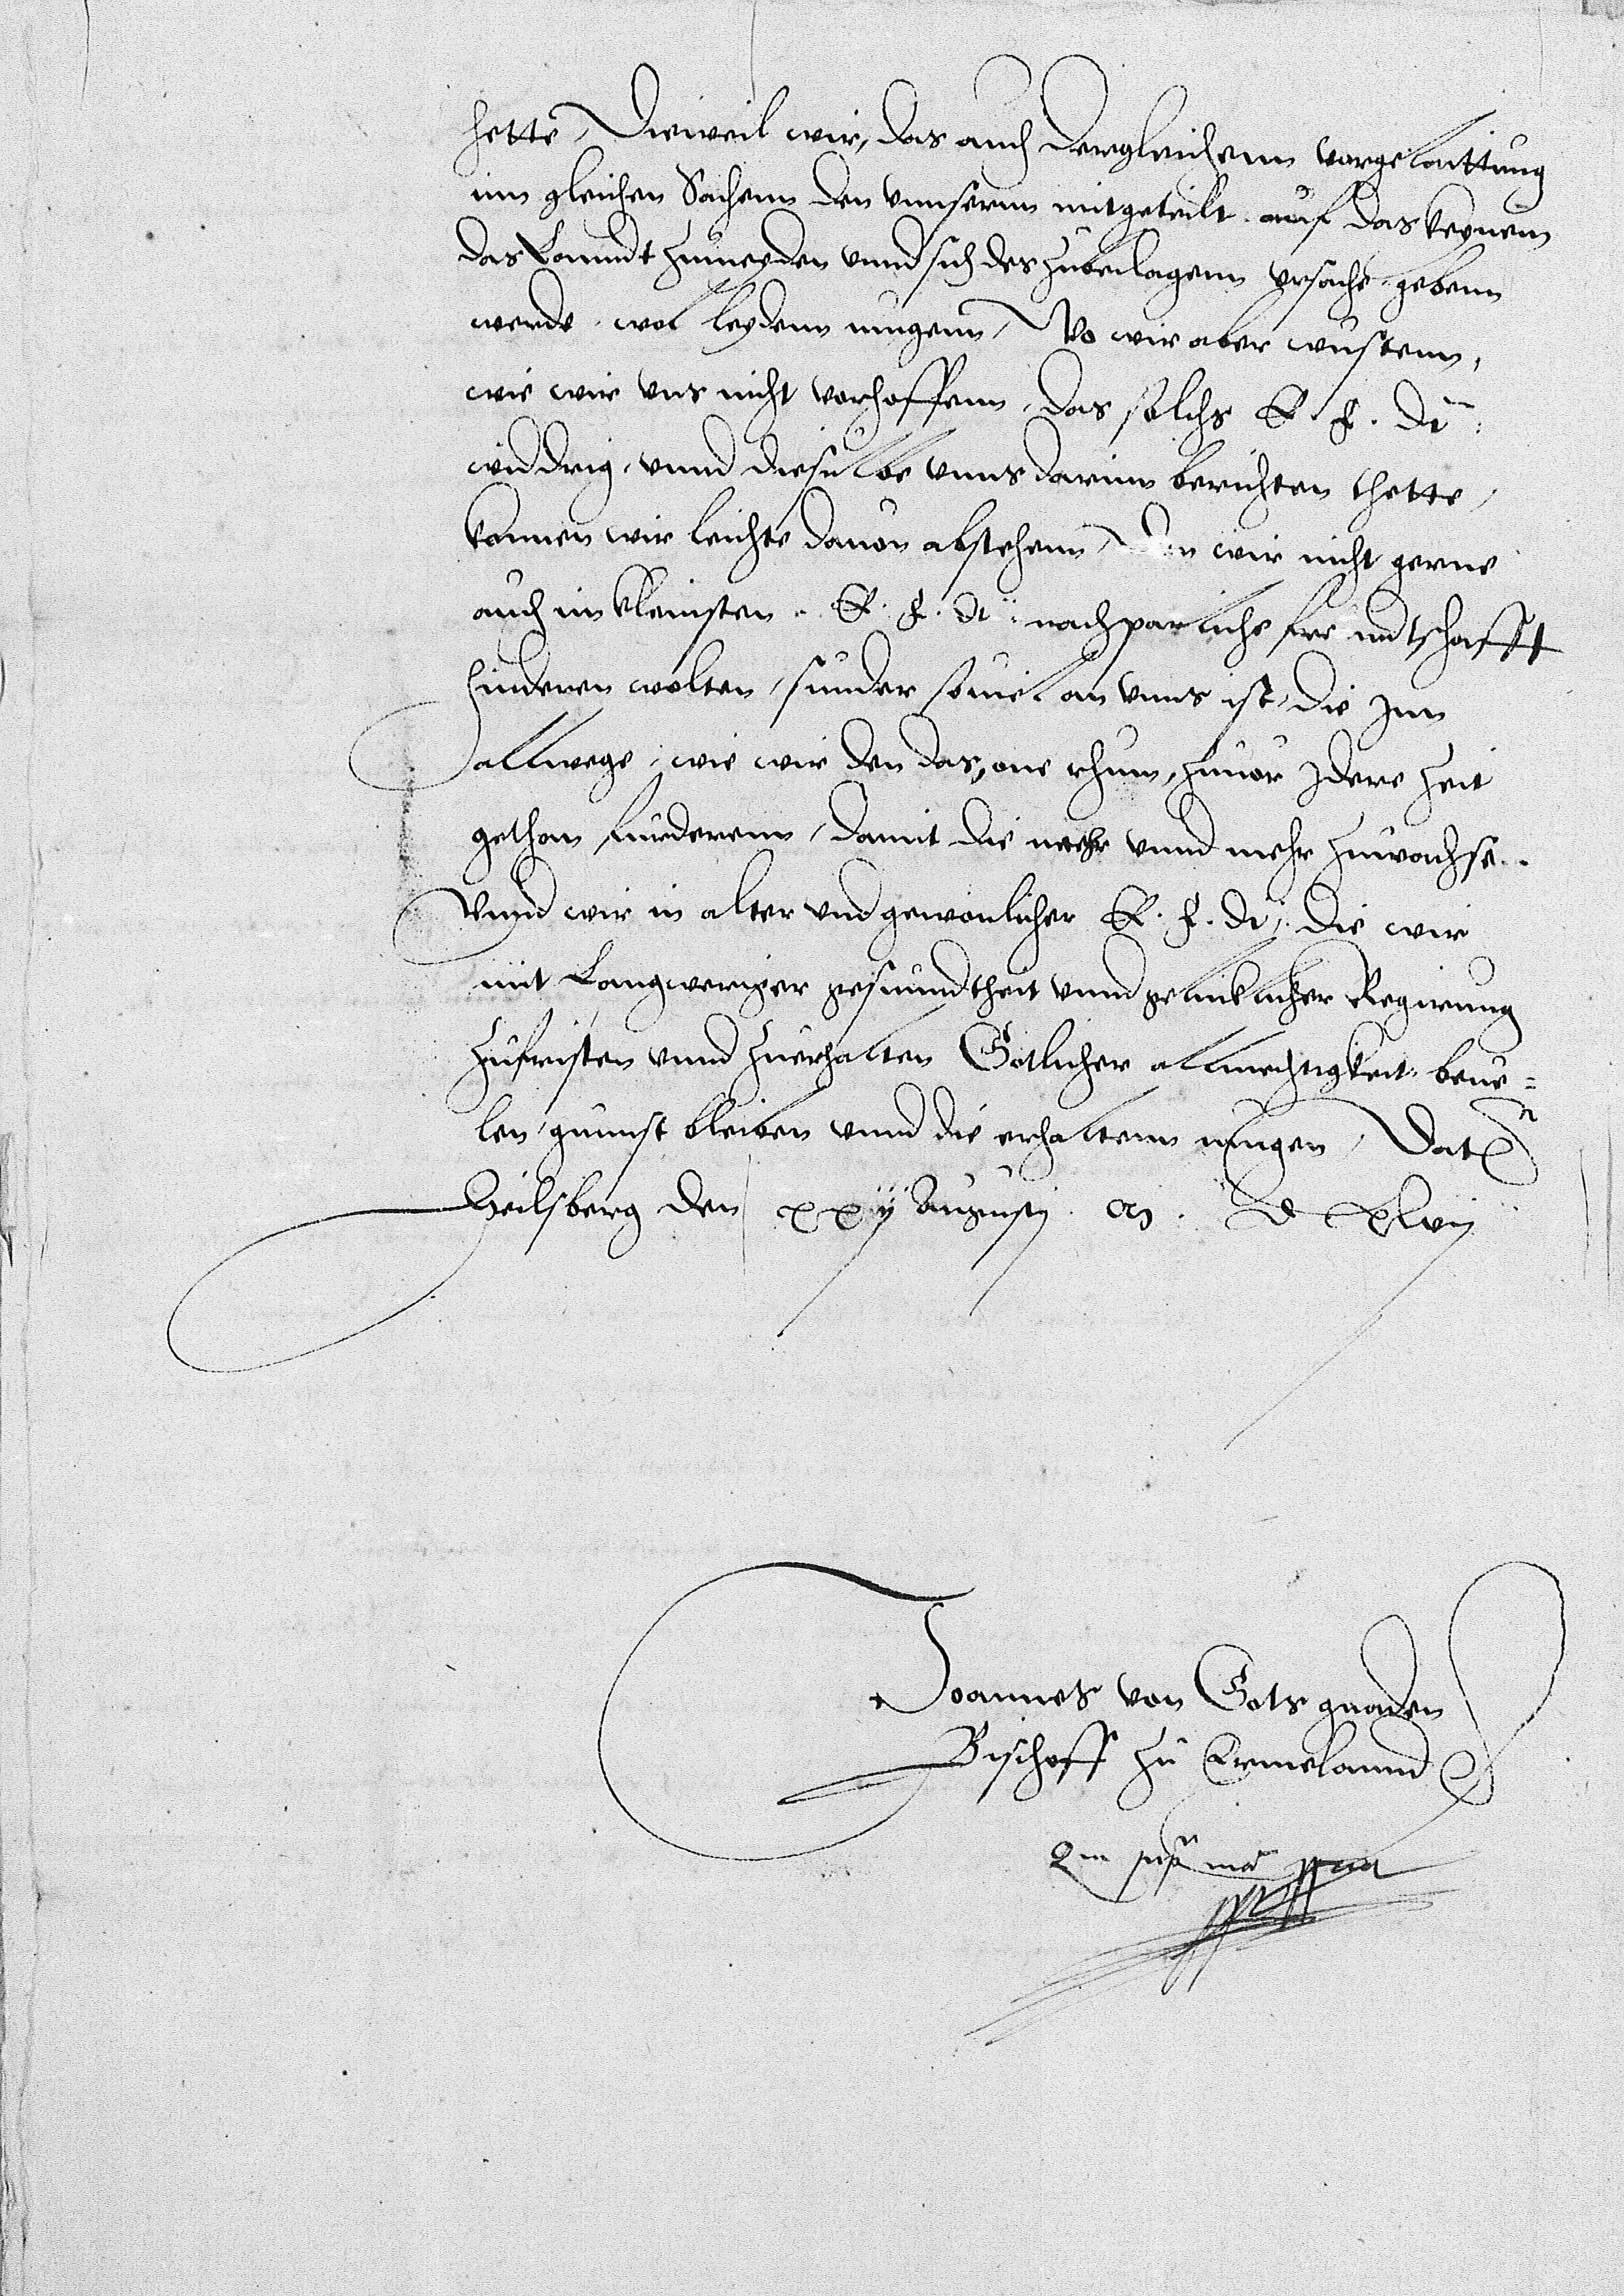 hette, Dieweil wir, das auch dergleichenn vorgelaittung
inn gleichen Sachenn den vnnserenn mitgeteilt. auf das keynem
das Lanndt zumeyden vnnd sich des zubeclagenn vrsache gebenn
werde. wol leydenn mugenn, Wo wir aber wustenn,
wie wir vns nicht vorhoffenn, das solchs E. F. Dt:
widdrig, vnnd dieselbe vnns darinn berichten thette,
konnen wir leichte dauon abstehenn, Den wir nicht gerne
auch im kleinsten. E. F. Dt: nachparliche freundtschafft
hinderen wolten, sunder souiel an vnns ist, die Inn
allwege, wie wir den das, one rhum, zuuor Idere Zeit
gethan, furderenn, damit die mehr vnnd mehr zuwachse..
Vnnd wir in alter vnd gewonlicher E. F. Dt:. die wir
mit Langweriger gesundtheit vnnd geluklicher Regirung
zufristen vnnd zuerhalten Gotlicher allmechtigkeit beue=
len, gunnst bleiben vnnd die erhaltenn mugen, Dat
Heilsberg den xxiij Augusti. M. D xlvij
Joannes von Gots gnaden
Bischoff zu Ermelannd